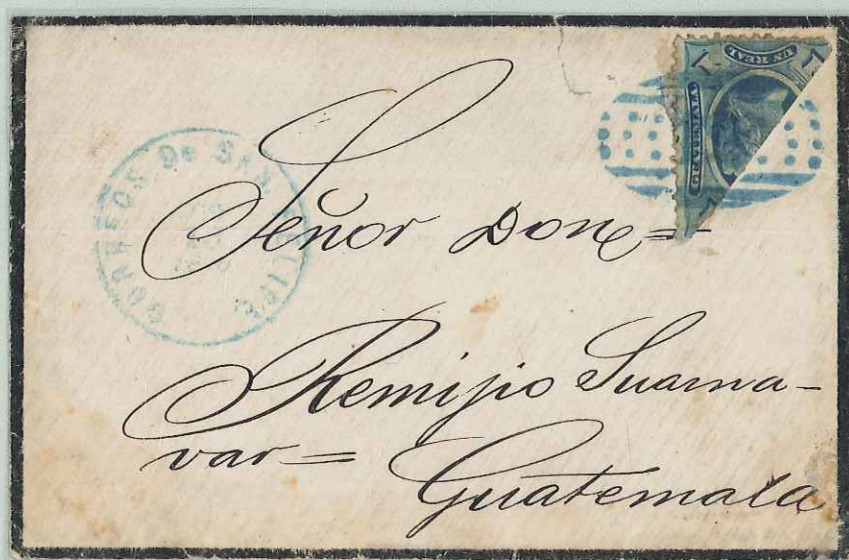 UN REAL
1 1
GUATEMALA
CORREOS De SAN FELIPE
Señor Don=
Remijio Suarna-
var=
Guatemala